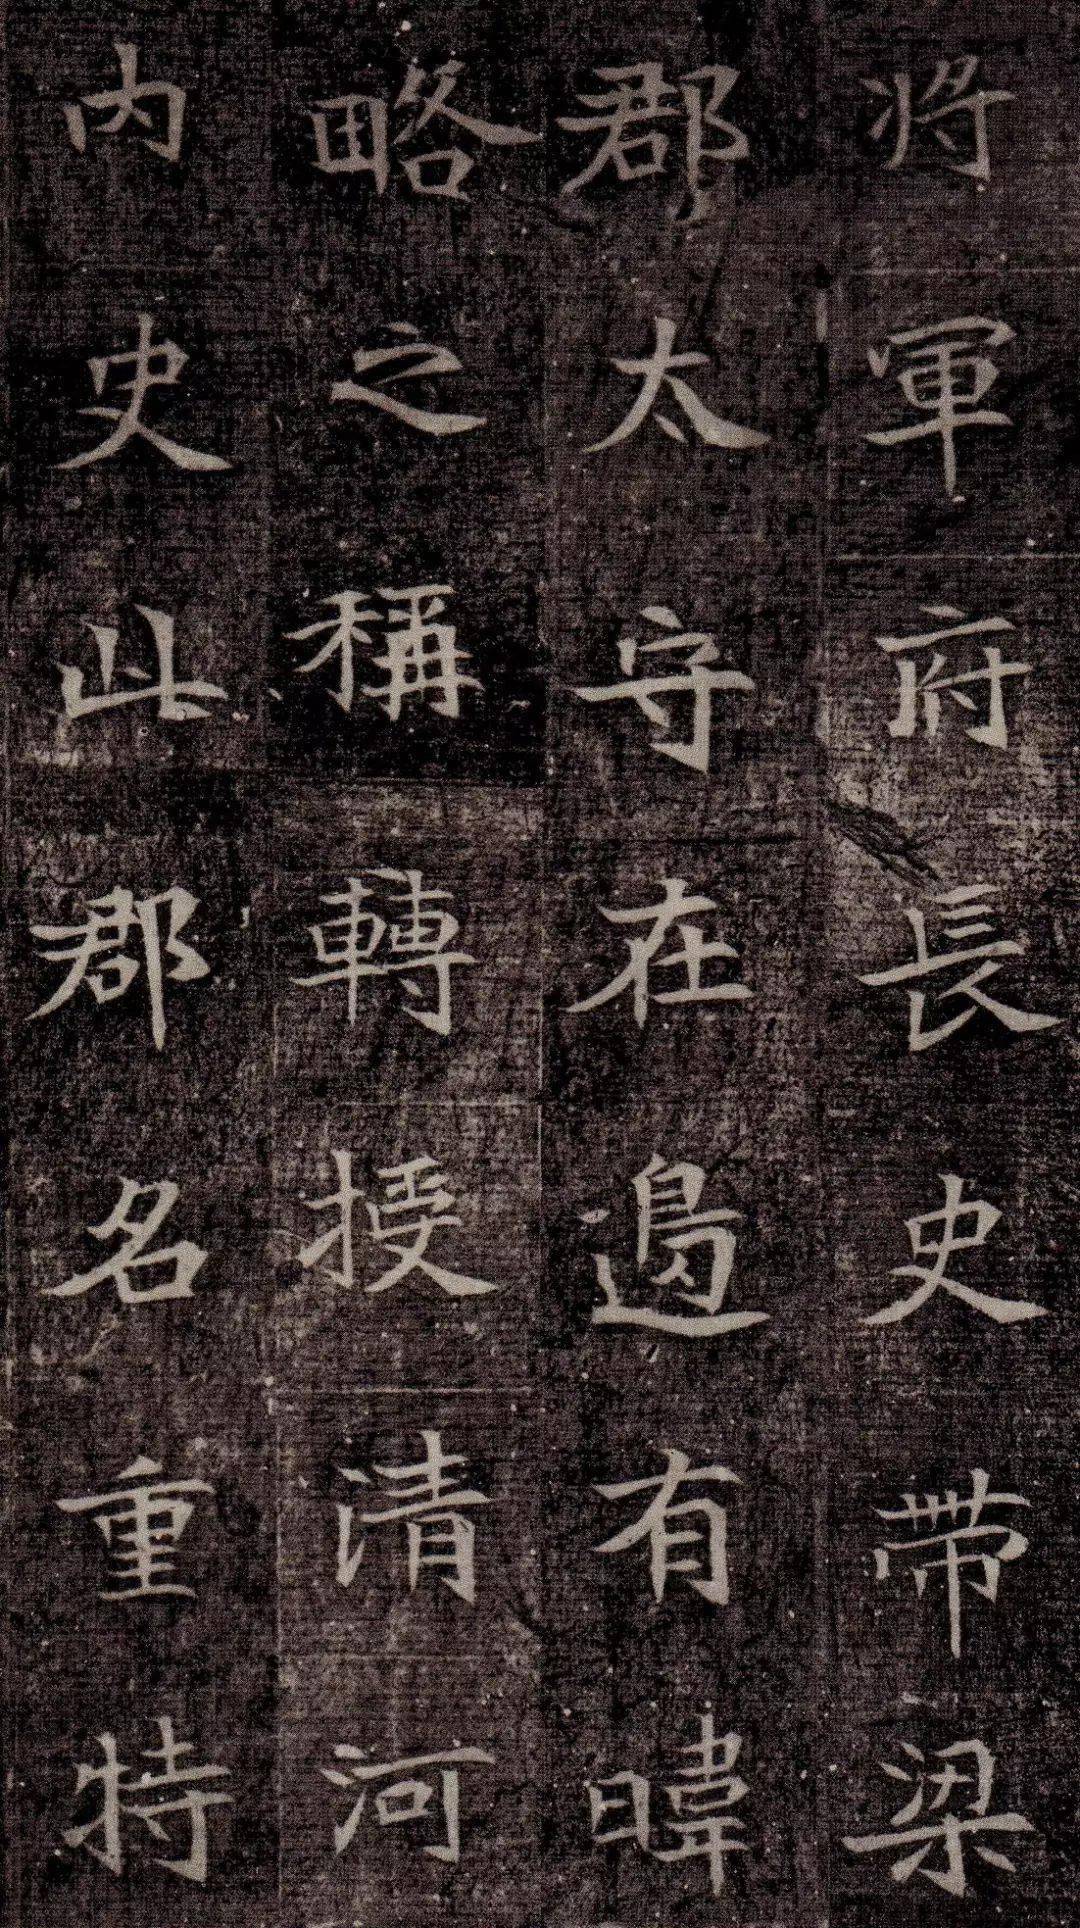 將軍府長史帶梁
郡太守在邊有暐
略之稱轉授清河
内史此郡名重特